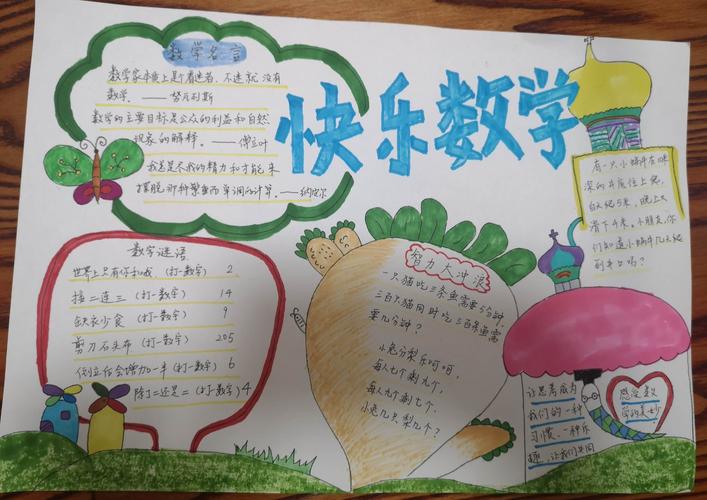 快乐数学
数学名言
数学家本质上是个着迷者,不迷就没有
数学. ——努瓦列斯
数学的主要目标是公众的利益和自然
现象的解释. ——傅立叶
我总是尽我的精力和才能来
摆脱那种繁重而单调的计算。——纳皮尔
数字谜语
世界上只有你和我 (打一数字) 2
接二连三 (打一数字) 14
缺衣少食 (打一数字) 9
剪刀石头布 (打一数字) 205
倒立后会增加一半 (打一数字) 6
除了二还是二 (打一数字) 4
智力大冲浪
一只猫吃三条鱼需要5分钟,
三百只猫同时吃三百条鱼需
要几分钟?
小兔分梨乐呵呵,
每人七个剩九个,
每人九个剩七个,
小兔几只梨几个?
有一只小蜗牛在
深的井底往上爬,
白天爬5米,晚上又
滑下4米,小朋友,你
们知道小蜗牛几天爬
到井口吗?
让思考成为
我们的一种
习惯、一种乐
趣,让我们共同
感受数
学的美妙